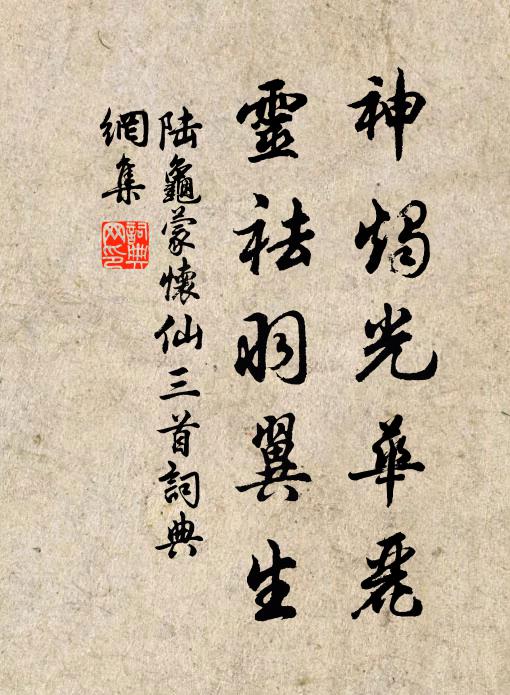 神燭光華麗
靈祛羽翼生
陸龜蒙懷仙三首詞典
網集
詞典
网印